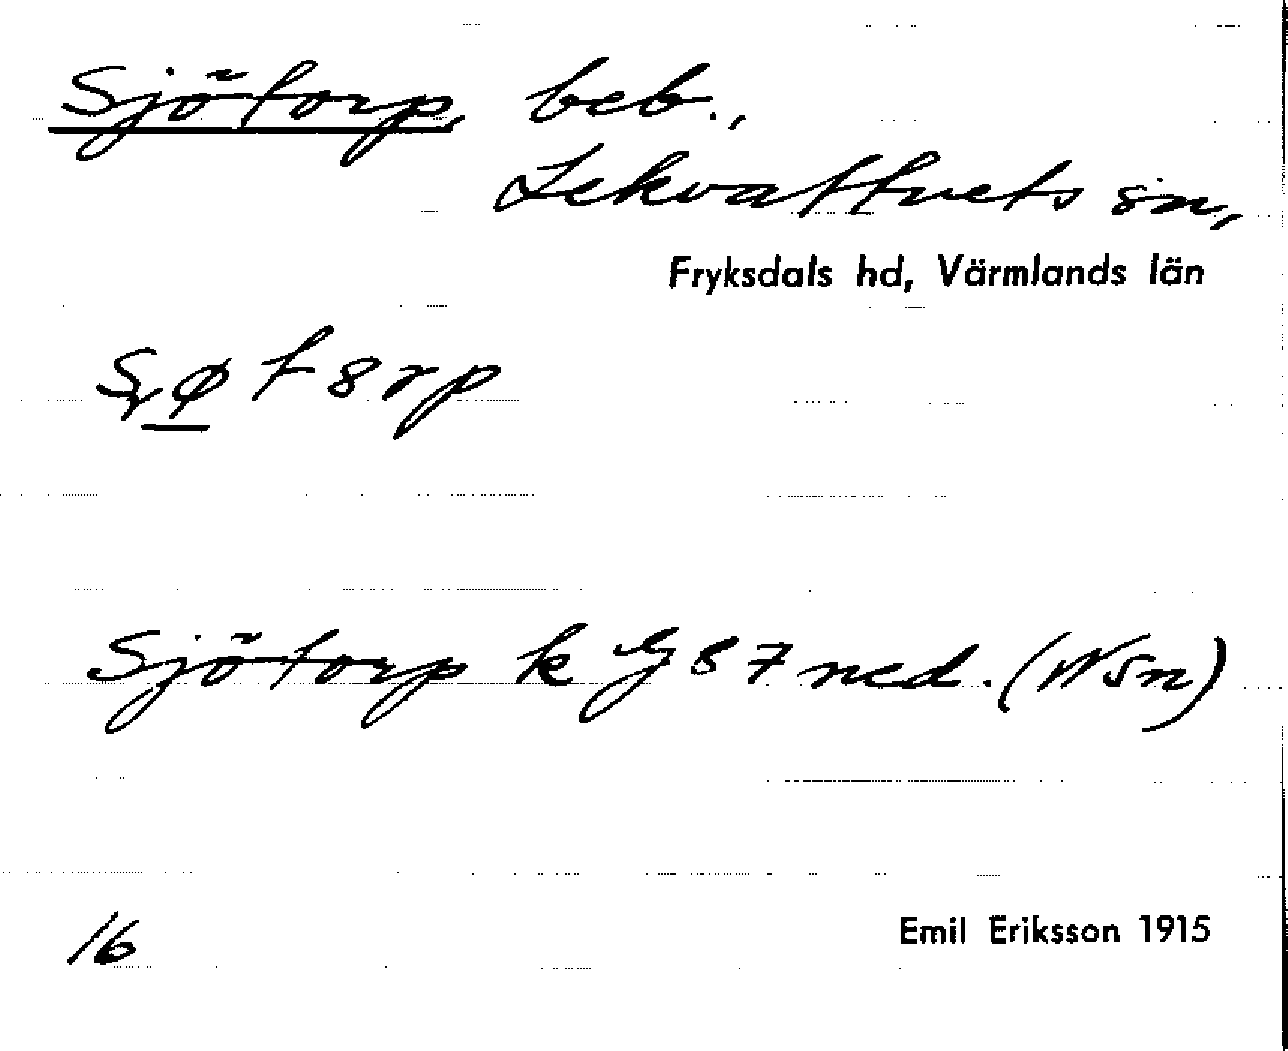 Sjötorp, beb.,
Lekvattnets sn,
Fryksdals hd, Värmlands län
Sjötorp k G 87 ned. (Wsn)
16
Emil Eriksson 1915